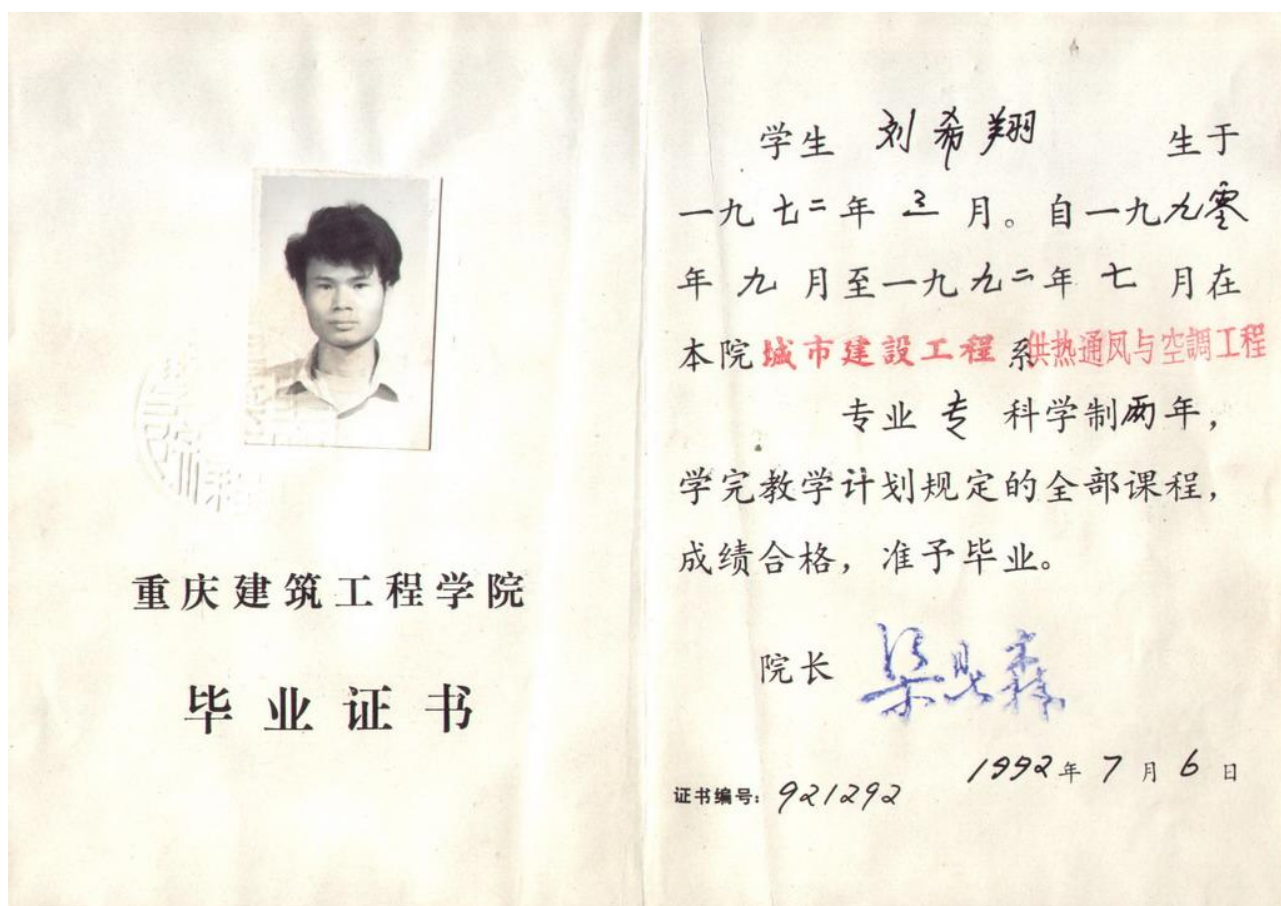 重庆建筑工程学院
毕业证书
学生 刘希翔 生于
一九七二年 三 月。自一九九零
年 九 月至一九九二年 七 月在
本院城市建設工程系供热通风与空調工程
专业 专 科学制两年,
学完教学计划规定的全部课程,
成绩合格,准予毕业。
院长
1992年 7 月 6 日
证书编号:921292